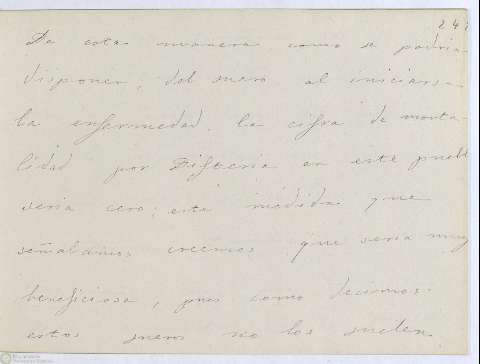 24
De esta manera como se podria
disponer, del suero al iniciarse
la enfermedad. la cifra de morta-
lidad por Difteria en este pueblo
seria cero; esta medida que
señalamos creemos que seria muy
beneficiosa, pues como decimos
estos sueros no los suelen